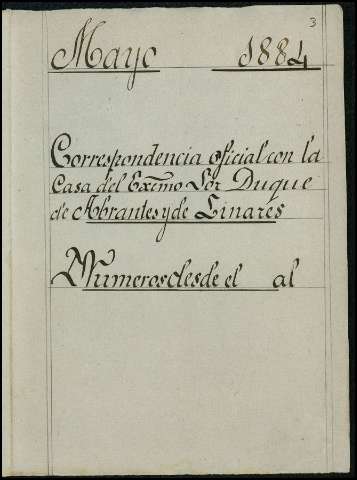 3
Mayo 1884
Correspondencia oficial con la
Casa del Exmo Sor Duque
de Abrantes y de Linares
Numeros desde el al